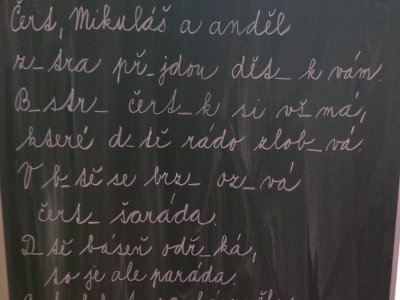 Čert, Mikuláš a anděl
z_tra př_jdou dět_ k vám.
B_str_ čert_k si vš_má,
které d_tě rádo zlob_vá.
V b_tě se brz_ oz_vá
čert_ šaráda.
D_tě báseň odř_ká,
to je ale paráda.